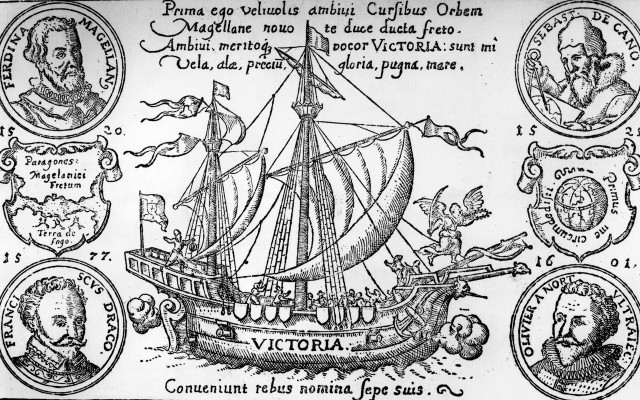 Prima ego veliuolis ambiui Cursibus Orbem
Magellane nouo te duce ducta freto.
Ambiui, meritoq₃ vocor VICTORIA: sunt mî
Vela, alæ, preciū, gloria, pugna, mare.
FERDINA MAGELLAN
SEBAST. DE CANO.
15 20.
15 2
Paragones:
Magelanici
Fretum
Terra de
fogo.
Primus me circumdedisti
15 77.
16 01.
FRANCISCVS DRACO.
OLIVIER A NORT VLTRAIECT
VICTORIA.
Conueniunt rebus nomina sepe suis.